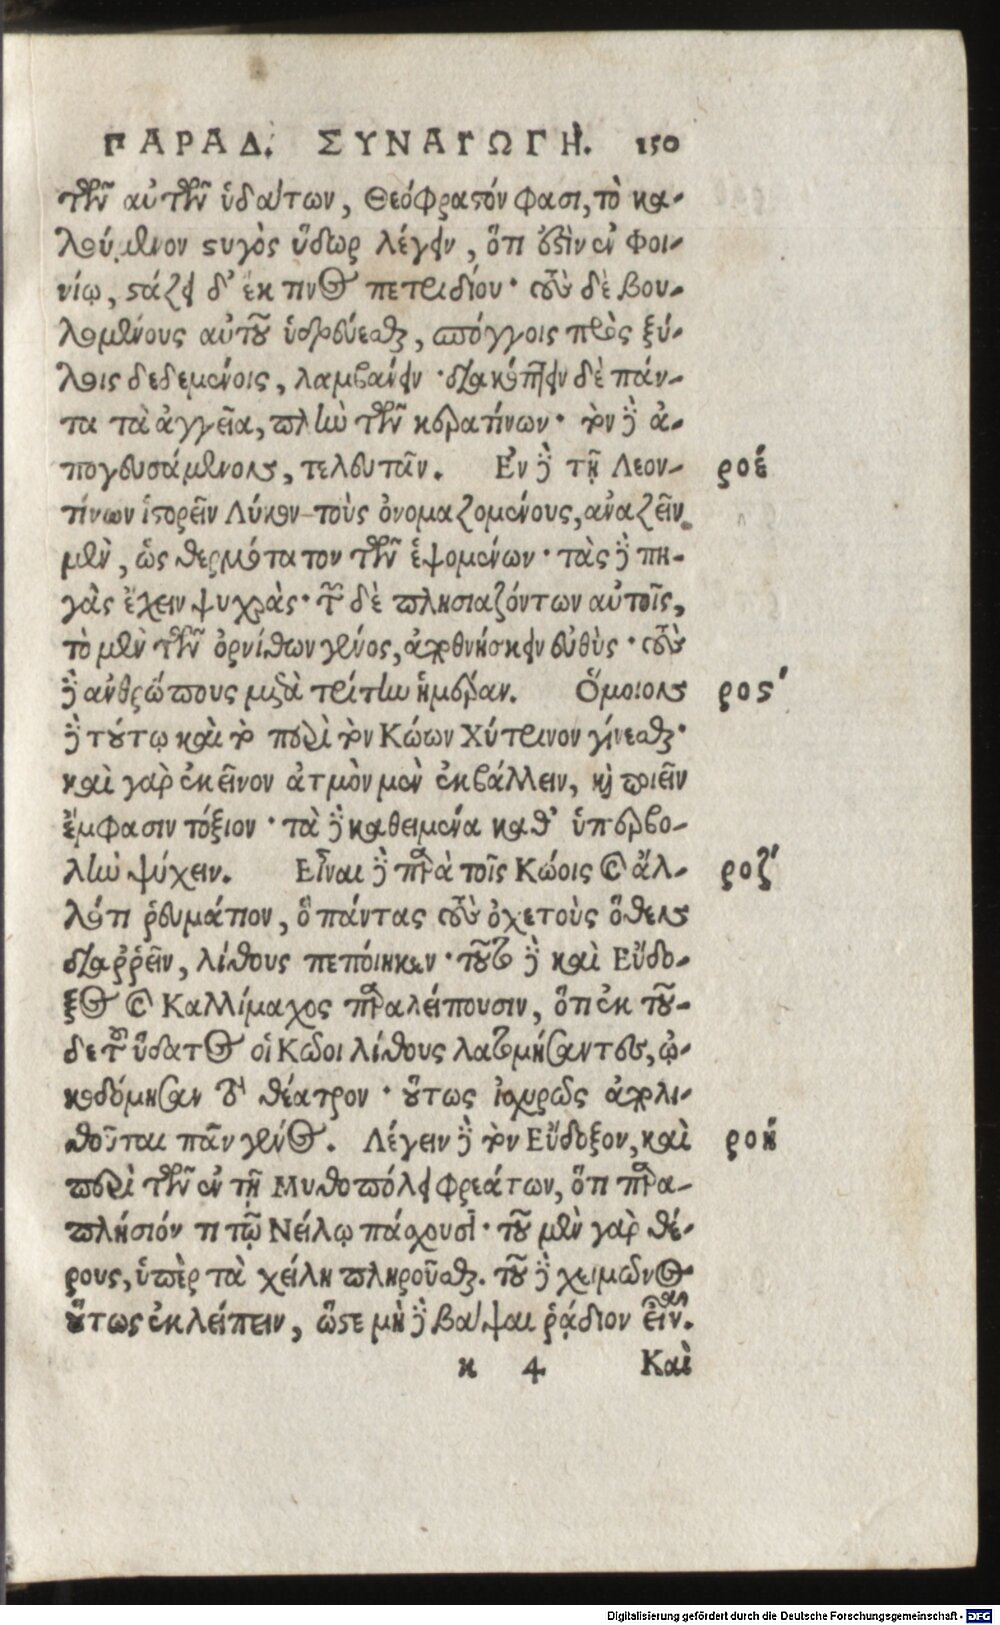 ΠΑΡΑΔ. ΣΥΝΑΓΩΓΗ. 150
τῶν αὐτῶν ὑδάτων, Θεόφραστόν φασι, τὸ κα-
λούμενον στυγὸς ὕδωρ λέγειν, ὅτι ἐστὶν ἐν Φοι-
νίῳ, στάζει δ' ἔκ τινος πετριδίου· τοὺς δὲ βου-
λομένους αὐτοῦ ὑδρεύεσθαι, σπόγγοις πρὸς ξύ-
λοις δεδεμένοις, λαμβάνειν· διακόπτειν δὲ πάν-
τα τὰ ἀγγεῖα, πλὴν τῶν κερατίνων· τὸν δὲ ἀ-
πογευσάμενον, τελευτᾶν. Ἐν δὲ τῇ Λεον- ροέ
τίνων ἱστορεῖν Λύκον τοὺς ὀνομαζομένους, ἀναζεῖν
μὲν, ὡς θερμότατον τῶν ἑψομένων· τὰς δὲ πη-
γὰς ἔχειν ψυχρὰς· τῶν δὲ πλησιαζόντων αὐτοῖς,
τὸ μὲν τῶν ὀρνίθων γένος, ἀποθνήσκειν εὐθὺς· τοὺς
δὲ ἀνθρώπους μετὰ τρίτην ἡμέραν. Ὅμοιον ρος'
δὲ τούτῳ καὶ τὸ περὶ τὸν Κώων Χύτρινον γίνεσθαι·
καὶ γὰρ ἐκεῖνον ἀτμὸν μὲν ἐκβάλλειν, καὶ ποιεῖν
ἔμφασιν τόξιον· τὰ δὲ καθειμένα καθ' ὑπερβο-
λὴν ψύχειν. Εἶναι δὲ παρὰ τοῖς Κώοις καὶ ἄλ- ροζ'
λό τι ῥευμάτιον, ὃ πάντας τοὺς ὀχετοὺς ὅθεν
διαῤῥεῖν, λίθους πεποίηκεν· τοῦτο δὲ καὶ Εὔδο-
ξος καὶ Καλλίμαχος παραλείπουσιν, ὅτι ἐκ τοῦ-
δε τοῦ ὕδατος οἱ Κῶοι λίθους λατομήσαντες, ᾠ-
κοδόμησαν τὸ θέατρον· οὕτως ἰσχυρῶς ἀπολι-
θοῦται πᾶν γένος. Λέγειν δὲ τὸν Εὔδοξον, καὶ ροή
περὶ τῶν ἐν τῇ Μυθοπόλει φρεάτων, ὅτι παρα-
πλήσιόν τι τῷ Νείλῳ πάσχουσι· τοῦ μὲν γὰρ θέ-
ρους, ὑπὲρ τὰ χείλη πληροῦσθαι. τοῦ δὲ χειμῶνος
οὕτως ἐκλείπειν, ὥστε μὴ δὲ βάψαι ῥᾴδιον εἶναι.
κ 4 Καὶ